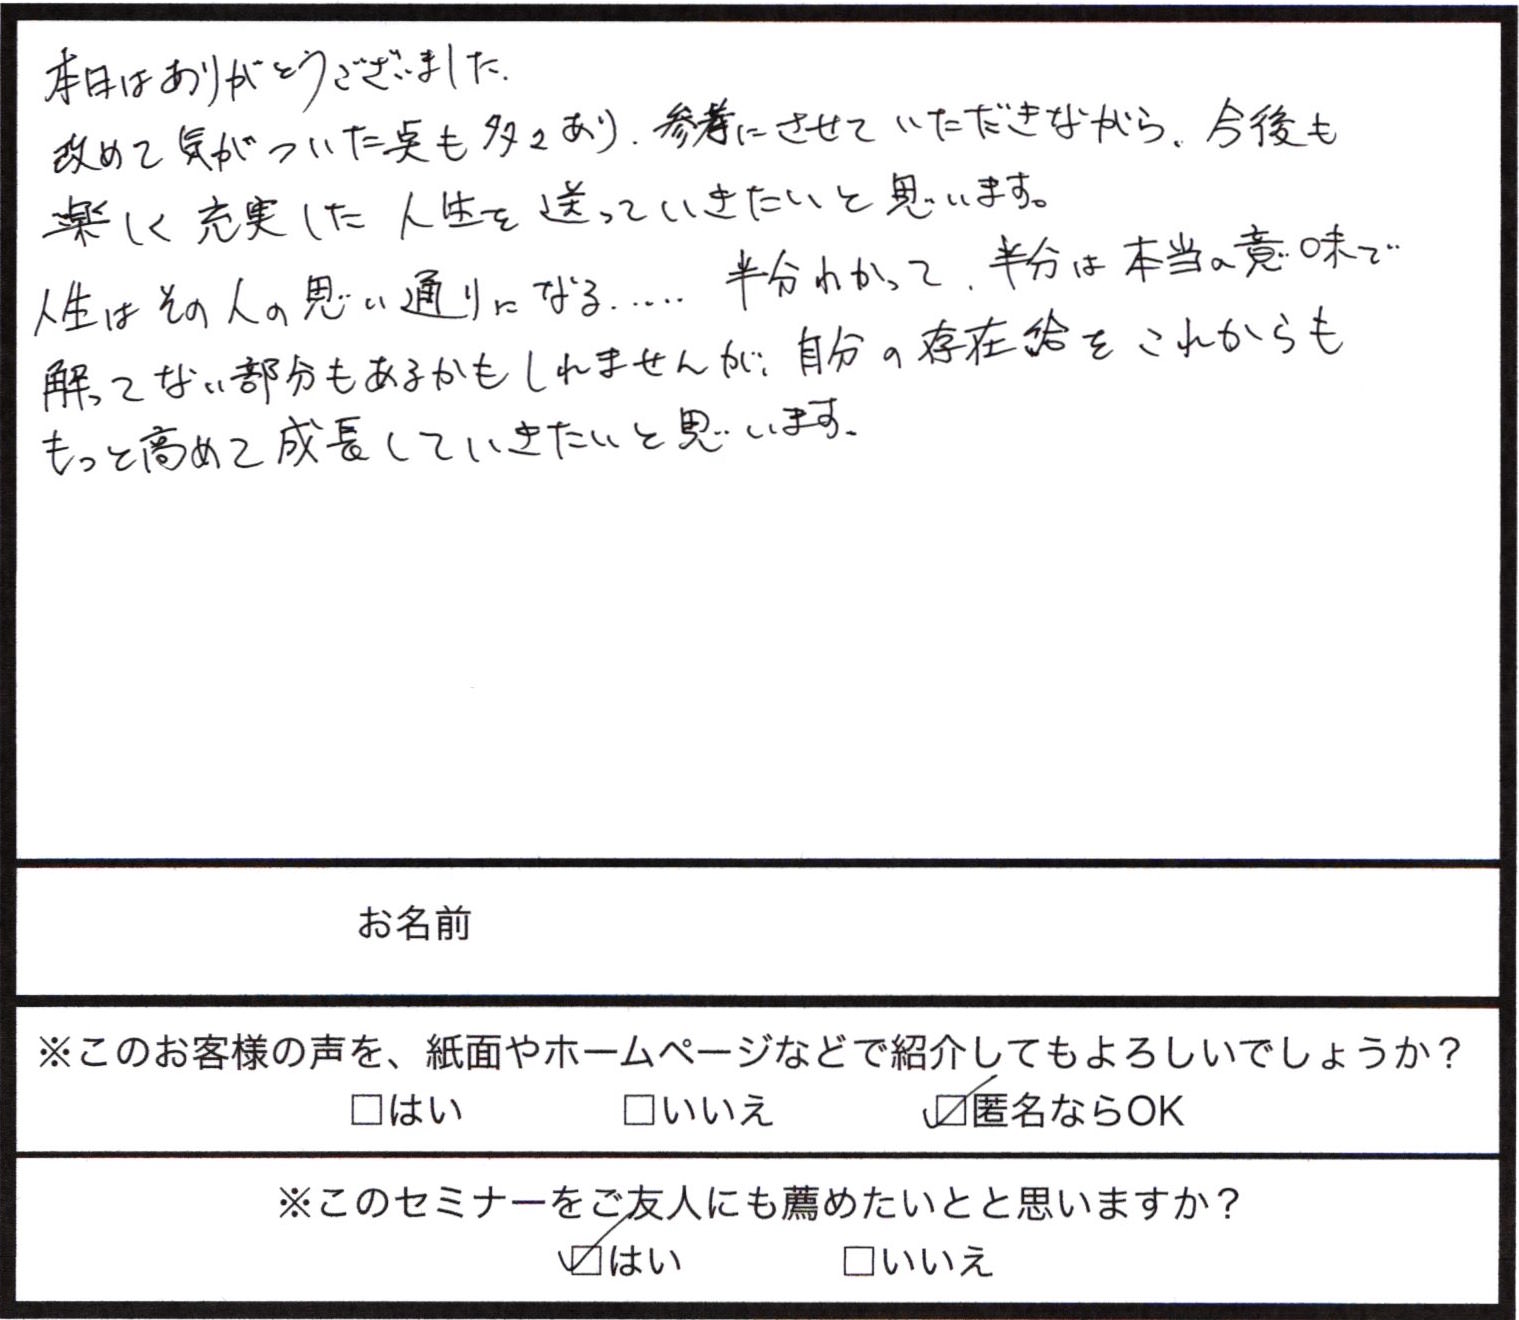 本日はありがとうございました.
改めて気がついた点も多々あり、参考にさせていただきながら、今後も
楽しく充実した人生を送っていきたいと思います。
人生はその人の思い通りになる..... 半分わかって、半分は本当の意味で
解ってない部分もあるかもしれませんが、自分の存在給をこれからも
もっと高めて成長していきたいと思います。
お名前
※このお客様の声を、紙面やホームページなどで紹介してもよろしいでしょうか？
□はい □いいえ ☑匿名ならOK
※このセミナーをご友人にも薦めたいとと思いますか？
☑はい □いいえ